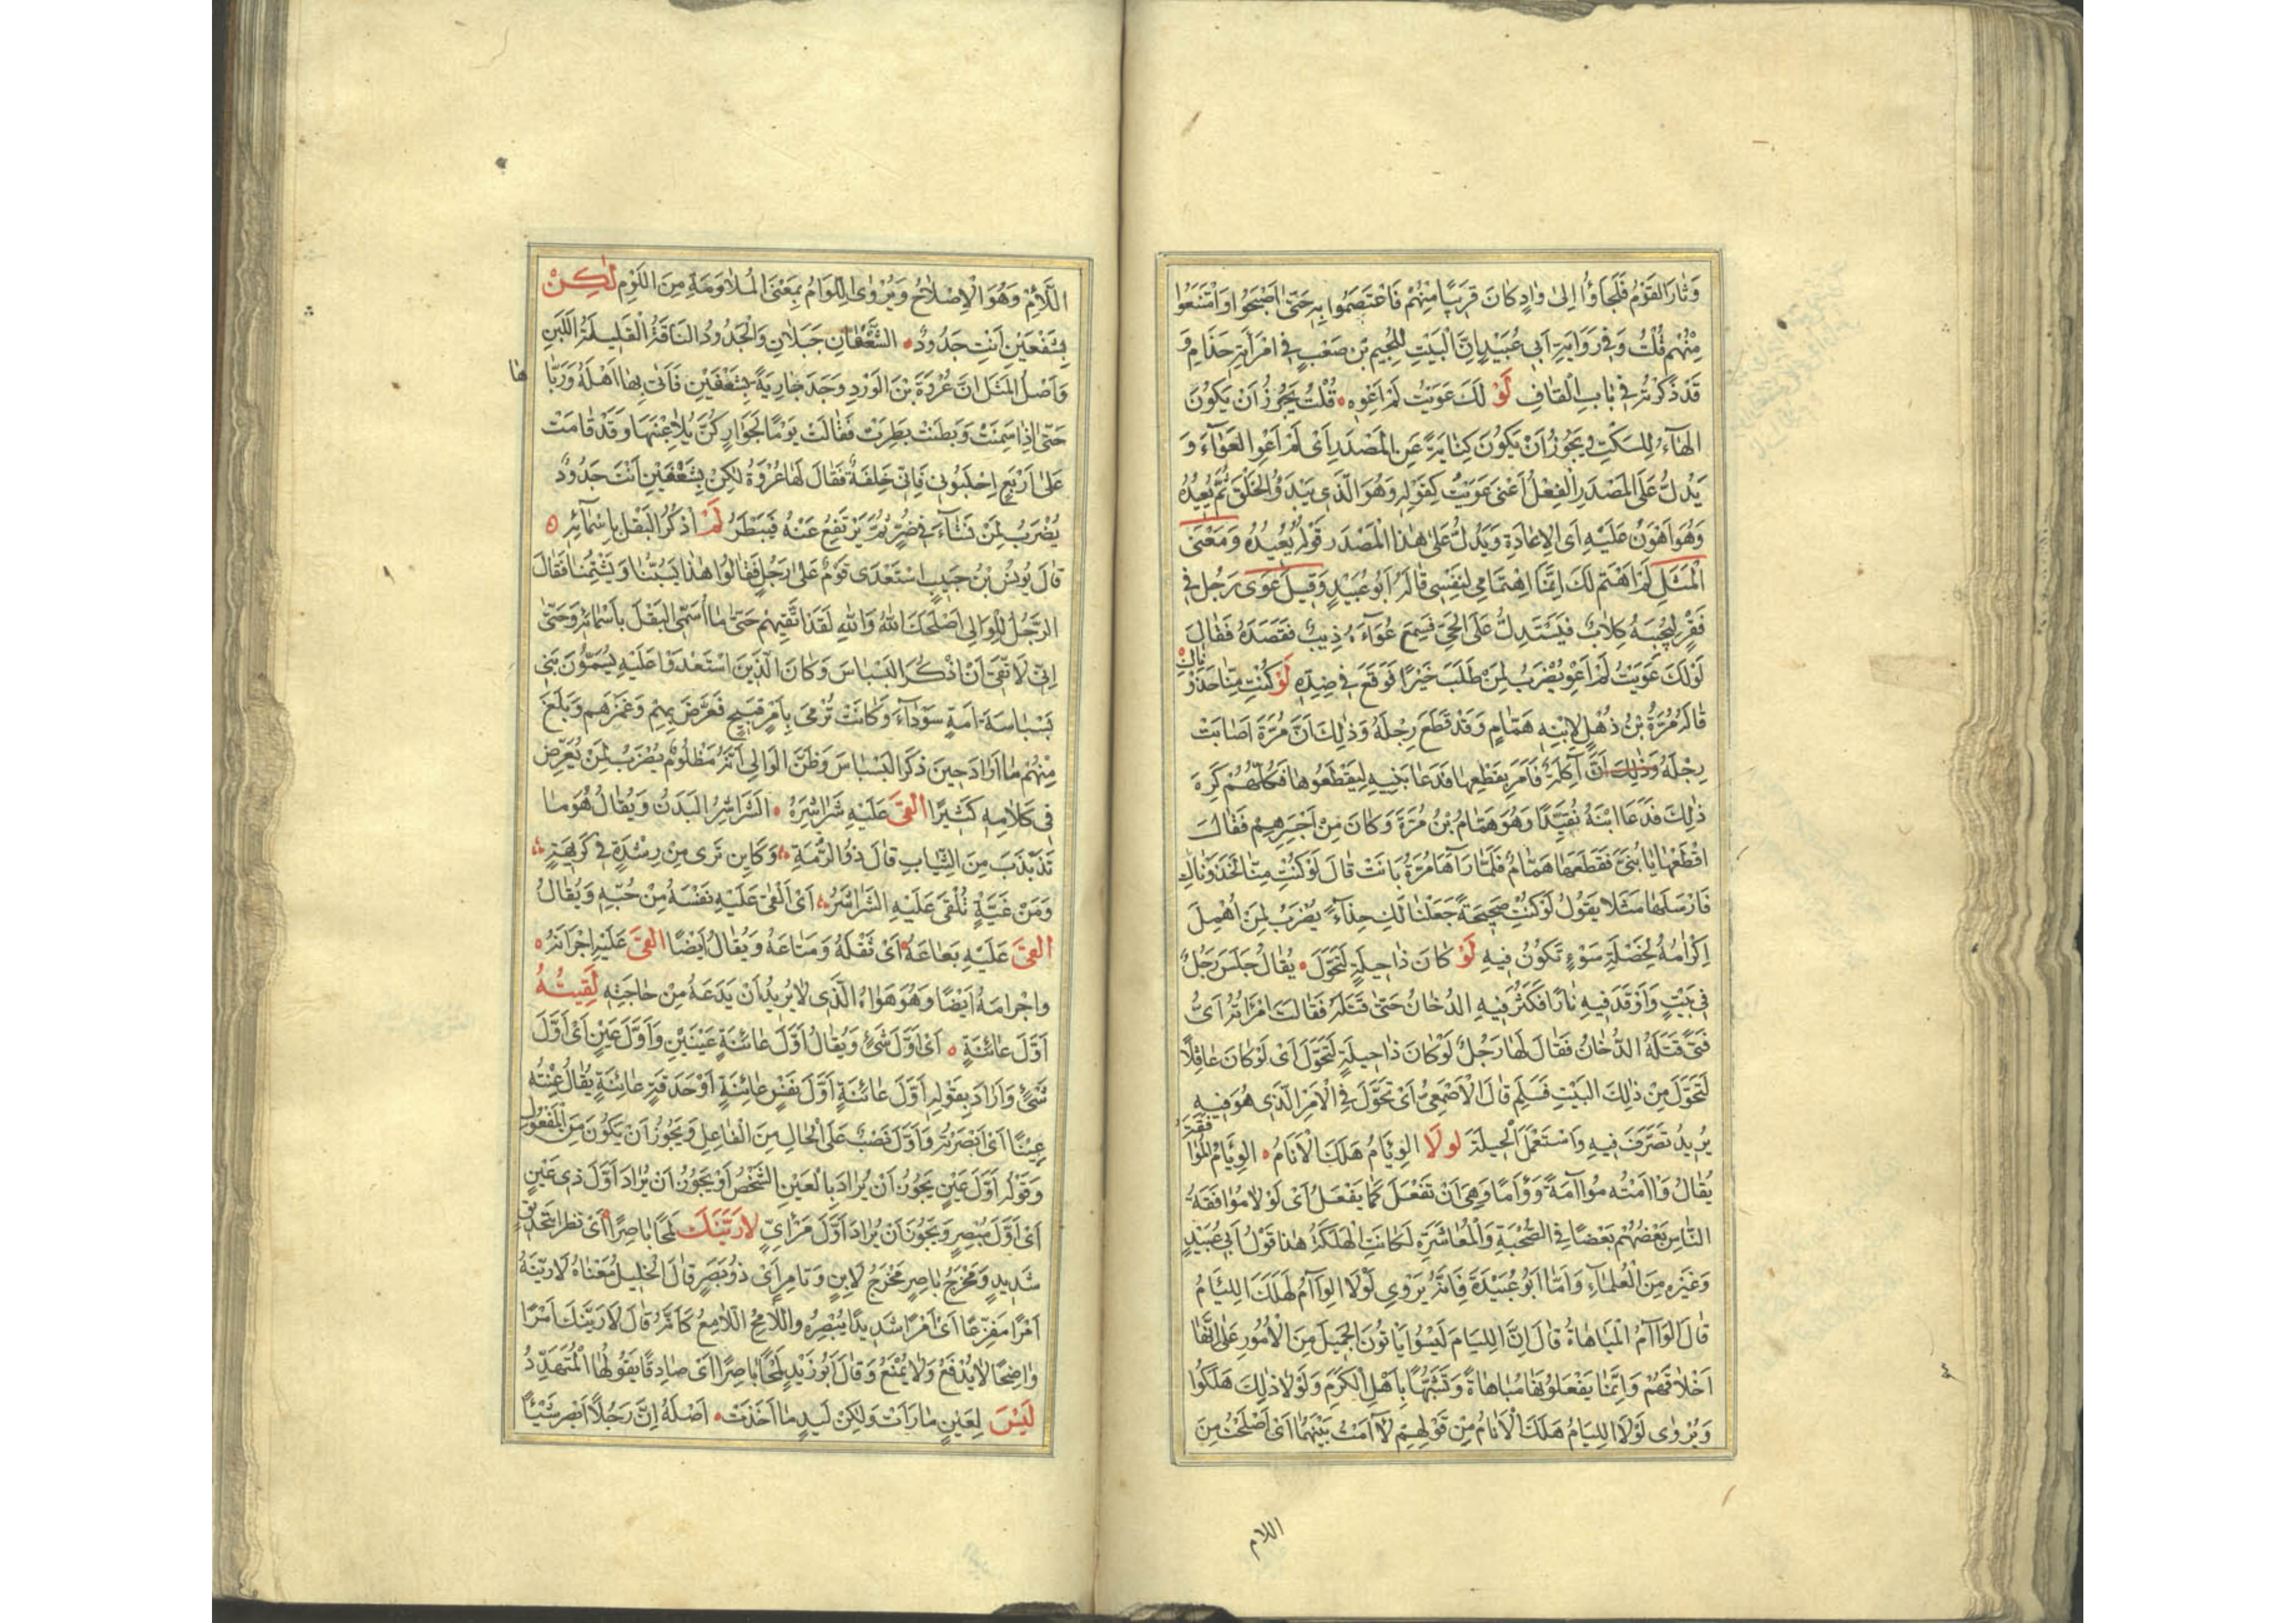 وَثَارَ القَوْمُ فَلَجَاؤُا اِلىٰ وَادٍ كَانَ قَرِيبًا مِنْهُمْ فَاعْتَصَمُوا بِهِ حَتّىٰ اَصْبَحُوا وَامْتَنَعُوا
مِنْهُم قُلْتُ وَفِي رَوَايَةِ اَبِي عُبَيْدٍ اِنَّ الْبَيْتِ لِلُجَيمِ بْنِ صَعْبٍ فِي امْرَأتِهِ حَذَامِ وَ
قَدْ ذَكَرْتُهُ فِي بَابِ الْقَافِ لَوْ لَكَ عَوَيْتُ لَمْ اَعْوِهِ قُلْتُ يَجُوزُ اَنْ يَكُونَ
الهَاءُ لِلسَّكْتِ وَيَجُوزُ اَنْ يَكُونَ كِنَايَةً عَنِ المَصْدَرِ اَىْ لَمْ اَعْوِ العَوَاءَ وَ
يَدُلُّ عَلَى المَصْدَرِ الْفِعْلُ اَعْنِى عَوَيْتُ كَقَوْلِهِ وَهُوَ الَّذِى يَبْدَؤُ الْخَلْقَ ثُمَّ يُعِيدُهُ
وَهُوَ اَهْوَنُ عَلَيْهِ اَى الْاِعَادَةِ وَيَدُلُّ عَلىٰ هٰذَا الْمَصْدَرِ قَوْلُهُ يُعِيدُهُ وَمَعْنَى
الْمَثَلِ لَمْ اَهْتَمَّ لَكَ اِنَّمَا اِهْتِمَامِى لِنَفْسِى قَالَهُ اَبُو عُبَيْدٍ وَقِيلَ عَوَى رَجُلٌ فِي
قَفْرٍ لِتُجِيبَهُ كِلَابٌ فَيَسْتَدِلُّ عَلَى الْحَىِّ فَسَمِعَ عُوَاءَهُ ذِيبٌ فَقَصَدَهُ فَقَالَ
لَوْ لَكَ عَوَيْتُ لَمْ اَعْوِ يُضْرَبُ لِمَنْ طَلَبَ خَيْرًا فَوَقَعَ فِي ضِدِّهِ لَوْ كُنْتِ مِنَّا حَذَوْ
نَاكِ
قَالَهُ مُرَّةُ بْنُ ذُهْلٍ لِابْنِهِ هَمَّامٍ وَقَدْ قَطَعَ رِجْلَهُ وَذٰلِكَ اَنَّ مُرَّةَ اَصَابَتْ
رِجْلَهُ وَذٰلِكَ اَنَّ آكِلَةٌ فَاَمَرَ بِقَطْعِهَا فَدَعَا بَنِيهِ لِيَقْطَعُوهَا فَكُلُّهُمْ كَرِهَ
ذٰلِكَ فَدَعَا ابْنَهُ نُقَيْدًا وَهُوَ هَمَّامُ بْنُ مُرَّةَ وَكَانَ مِنْ اَجْسَرِهِمْ فَقَالَ
اقْطَعْهَا يَا بُنَىَّ فَقَطَعَهَا هَمَّامٌ فَلَمَّا رَآهَا مُرَّةُ بَانَتْ قَالَ لَوْ كُنْتِ مِنَّا لَحَذَوْنَاكِ
فَاَرْسَلَهَا مَثَلًا يَقُولُ لَوْ كُنْتِ صَحِيحَةً جَعَلْنَا لَكِ حِذَاءً يُضْرَبُ لِمَنْ اُهْمِلَ
اِكْرَامُهُ لِخَصْلَةِ سَوْءٍ تَكُونُ فِيهِ لَوْ كَانَ ذَا حِيلَةٍ لَتَحَوَّلَ يُقَالُ جَلَسَ رَجُلٌ
فِي بَيْتٍ وَاَوْقَدَ فِيهِ نَارًا فَكَثُرَ فِيهِ الدُّخَانُ حَتّىٰ قَتَلَهُ فَقَالَتِ امْرَاَتُهُ اَىُّ
فَتىً قَتَلَهُ الدُّخَانُ فَقَالَ لَهَا رَجُلٌ لَوْ كَانَ ذَا حِيلَةٍ لَتَحَوَّلَ اَىْ لَوْ كَانَ عَاقِلًا
لَتَحَوَّلَ مِنْ ذٰلِكَ البَيْتِ فَسَلِمَ قَالَ الْاَصْمَعِىُّ اَىْ تَحَوَّلَ فِي الْاَمْرِ الَّذِى هُوَ فِيهِ
يُرِيدُ تَصَرَّفَ فِيهِ وَاسْتَعْمَلَ الْحِيلَةَ لَولَا الوِئَامُ هَلَكَ الْاَنَامُ الوِئَامُ المُوَا
فَقَة
يُقَالُ وَاءَمْتُهُ مُوَاءَمَةً وَوِئَامًا وَهِىَ اَنْ تَفْعَلَ كَمَا يَفْعَلُ اَىْ لَوْلَا مُوَافَقَةُ
النَّاسِ بَعْضُهُمْ بَعْضًا فِي الصُّحْبَةِ وَالْمُعَاشَرَةِ لَكَانَتِ الْهَلَكَةُ هٰذَا قَوْلُ اَبِي عُبَيْدٍ
وَغَيْرِهِ مِنَ الْعُلَمَاءِ وَاَمَّا اَبُو عُبَيْدَةَ فَاِنَّهُ يَرْوِى لَوْلَا الوِاَامُ لَهَلَكَ اللِّئَامُ
قَالَ الوَاَامُ الْمُبَاهَاةُ قَالَ اِنَّ اللِّيَامَ لَيْسُوا يَاتُونَ الْجَمِيلَ مِنَ الْاُمُورِ عَلىٰ اَنَّهَا
اَخْلَاقُهُمْ وَاِنَّمَا يَفْعَلُونَهَا مُبَاهَاةً وَتَشَبُّهًا بِاَهْلِ الْكَرَمِ وَلَوْلَا ذٰلِكَ هَلَكُوا
وَيُرْوَى لَوْلَا اللِّيَامُ هَلَكَ الْاَنَامُ مِنْ قَوْلِهِمْ لَاَامَتُ بَيْنَهُمَا اَىْ اَصْلَحْتُ مِنَ
اللام
اللَّاْمِ وَهُوَ الْاِصْلَاحُ وَيُرْوَى اللِّوَامُ بِمَعْنَى الْمُلَاوَمَةِ مِنَ اللَّوْمِ لٰكِنْ
بِشَعْفَيْنِ اَنْتِ جَدُودٌ الشَّعْفَانِ جَبَلَانِ وَالْجَدُودُ النَّاقَةُ الْقَلِيلَةُ اللَّبَنِ
وَاَصْلُ الْمَثَلِ اَنَّ عُرْوَةَ بْنَ الْوَرْدِ وَجَدَ جَارِيَةً بِشَعْفَيْنِ فَاَتَى بِهَا اَهْلَهُ وَرَبَّا
هَا
حَتّىٰ اِذَا سَمِنَتْ وَبَطِنَتْ بَطِرَتْ فَقَالَتْ يَوْمًا لِجَوَارٍ كُنَّ يُلَاعِبْنَهَا وَقَدْ قَامَتْ
عَلىٰ اَرْبَعٍ اِحْلِبُونِى فَاِنِّى خَلِفَةٌ فَقَالَ لَهَا عُرْوَةُ لٰكِنْ بِشَعْفَيْنِ اَنْتِ جَدُودٌ
يُضْرَبُ لِمَنْ نَشَاءَ فِي ضُرٍّ ثُمَّ يَرْتَفِعُ عَنْهُ فَيَبْطَرُ لَمْ اَذْكُرُ الْبَقْلَ بِاِسْمَائِهِ
قَالَ يُونُسُ بْنُ حَبِيبٍ اسْتَعْدَى قَوْمٌ عَلىٰ رَجُلٍ فَقَالُوا هٰذَا يَسُبُّنَا وَيَشْتِمُنَا فَقَالَ
الرَّجُلُ لِلْوَالِى اَصْلَحَكَ اللّٰهُ وَاللّٰهِ لَقَدْ اَتَّقِيهِمْ حَتّىٰ مَا اُسَمِّى الْبَقْلَ بِاَسْمَائِهِ وَحَتّىٰ
اِنِّى لَاَتَّقِى اَنْ اَذْكُرَ الْبَسْبَاسَ وَكَانَ الَّذِينَ اسْتَعْدَوْا عَلَيْهِ يُسَمَّوْنَ بَنِى
بَسْبَاسَةَ اَمَةٍ سَوْدَاءَ وَكَانَتْ تُرْمَى بِاَمْرٍ قَبِيحٍ فَعَرَّضَ بِهِمْ وَغَمَزَهُمْ وَبَلَغَ
مِنْهُمْ مَا اَرَادَ حِينَ ذَكَرَ الْبَسْبَاسَ وَظَنَّ الْوَالِى اَنَّهُ مَظْلُومٌ يُضْرَبُ لِمَنْ يُعَرِّضُ
فِي كَلَامِهِ كَثِيرًا القَى عَلَيْهِ شَرَاشِرَهُ الشَّرَاشِرُ الْبَدَنُ وَيُقَالُ هُوَ مَا
تَذَبْذَبَ مِنَ الثِّيَابِ قَالَ ذُو الرُّمَّةِ وَكَايِن تَرَى مِنْ رِشْدَةٍ فِي كَرِيهَةٍ
وَمَنْ غَيَّةٍ تُلْقَى عَلَيْهِ الشَّرَاشِرُ اَىْ اَلْقَى عَلَيْهِ نَفْسَهُ مِنْ حُبِّهِ وَيُقَالُ
القَى عَلَيْهِ بَعَاعَهُ اَىْ ثَقْلَهُ وَمَتَاعَهُ وَيُقَالُ اَيْضًا القَى عَلَيْهِ اِجْرَانَهُ
وَاِجْرَامَهُ اَيْضًا وَهُوَ هَوَاهُ الَّذِى لَا يُرِيدُ اَنْ يَدَعَهُ مِنْ حَاجَتِهِ لَقِيتُهُ
اَوَّلَ عَائِنَةٍ اَىْ اَوَّلَ شَئٍ وَيُقَالُ اَوَّلَ عَائِنَةِ عَيْنَيْنِ وَاَوَّلَ عَيْنٍ اَىْ اَوَّلَ
شَئٍ وَاَرَادَ بِقَوْلِهِ اَوَّلَ عَائِنَةٍ اَوَّلَ نَفْسٍ عَائِنَةٍ اَوْ حَدَقَةٍ عَائِنَةٍ يُقَالُ عِنْتُهُ
عِيْنًا اَىْ اَبْصَرْتُهُ وَاَوَّلَ نَصْبٌ عَلَى الْحَالِ مِنَ الْفَاعِلِ وَيَجُوزُ اَنْ يَكُونَ مِنَ الْمَفْعُولِ
وَقَوْلُهُ اَوَّلَ عَيْنٍ يَجُوزُ اَنْ يُرَادَ بِالْعَيْنِ الشَّخْصُ اَوْ يَجُوزُ اَنْ يُرَادَ اَوَّلَ ذِى عَيْنٍ
اَىْ اَوَّلَ مُبْصِرٍ وَيَجُوزُ اَنْ يُرَادَ اَوَّلَ مَرْاِىٍّ لَارِيَنَّكَ لَمْحًا بَاصِرًا اَىْ نَظَرًا بِتَحْدِيقٍ
شَدِيدٍ وَمَخْرَجُ بَاصِرٍ مَخْرَجُ لَابِنٍ وَتَامِرٍ اَىْ ذُو بَصَرٍ قَالَ الْخَلِيلُ مَعْنَاهُ لَارِيَنَّهُ
اَمْرًا مُفَزِّعًا اَىْ اَمْرًا شَدِيدًا يُبْصِرُهُ وَاللَّامِحُ اللَّامِعُ كَاَنَّهُ قَالَ لَارِيَنَّكَ اَمْرًا
وَاضِحًا لَا يُدْفَعُ وَلَا يُمْنَعُ وَقَالَ اَبُو زَيْدٍ لَمْحًا بَاصِرًا اَىْ صَادِقًا يَقُولُهَا الْمُتَهَدِّدُ
لَيْسَ لِعَيْنٍ مَا رَاَتْ وَلٰكِنْ لِيَدٍ مَا اَخَذَتْ اَصْلُهُ اِنَّ رَجُلًا اَبْصَرَ شَيْئًا